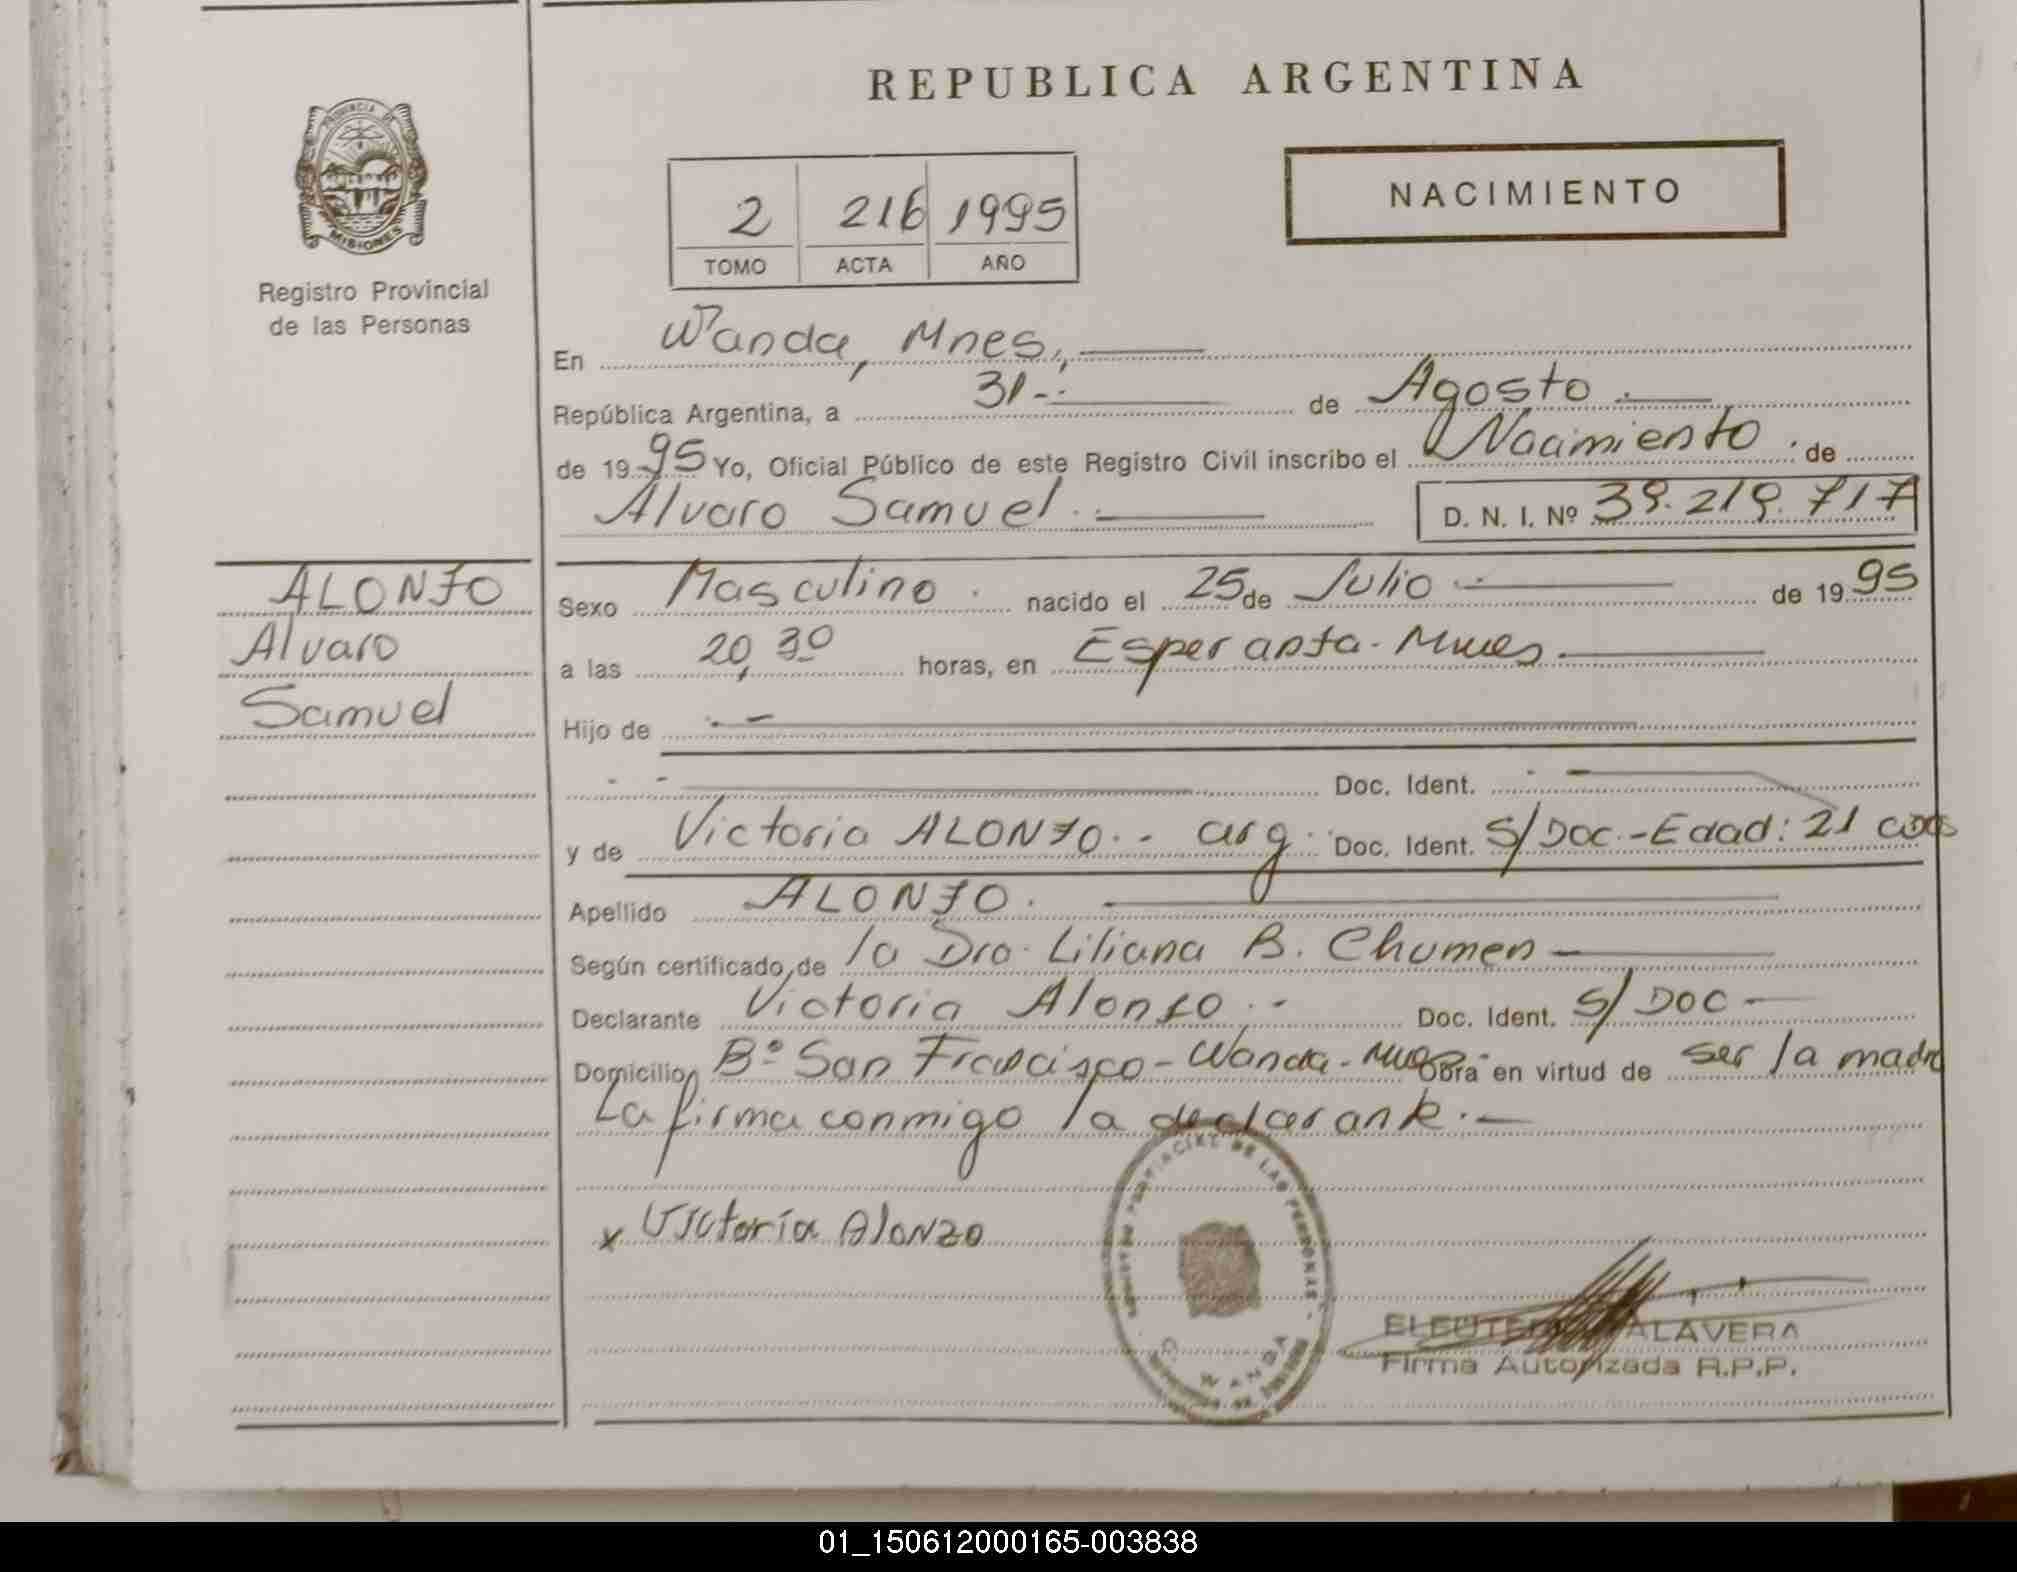 REPUBLICA ARGENTINA
PROVINCIA DE
MISIONES
Registro Provincial
de las Personas
NACIMIENTO
2 216 1995
TOMO ACTA AÑO
En Wanda, Mnes.,
República Argentina, a 31-. de Agosto.
de 1995 Yo, Oficial Público de este Registro Civil inscribo el Nacimiento. de
Alvaro Samuel. D. N. I. Nº 39.219.717
ALONZO
Alvaro
Samuel
Sexo Masculino. nacido el 25 de Julio de 1995
a las 20,30 horas, en Esperanza-Mnes.
Hijo de
Doc. Ident.
y de Victoria ALONZO.- arg. Doc. Ident. S/Doc.-Edad: 21 años
Apellido ALONZO.
Según certificado de la Dra. Liliana B. Chumen
Declarante Victoria Alonzo.- Doc. Ident. S/DOC-
Domicilio Bº San Francisco-Wanda- Obra en virtud de ser la madre
La firma conmigo la declarante.-
x Victoria Alonzo
DE LAS PERSONAS
WANDA
ALAVERA
Firma Autorizada R.P.P.
01_150612000165-003838